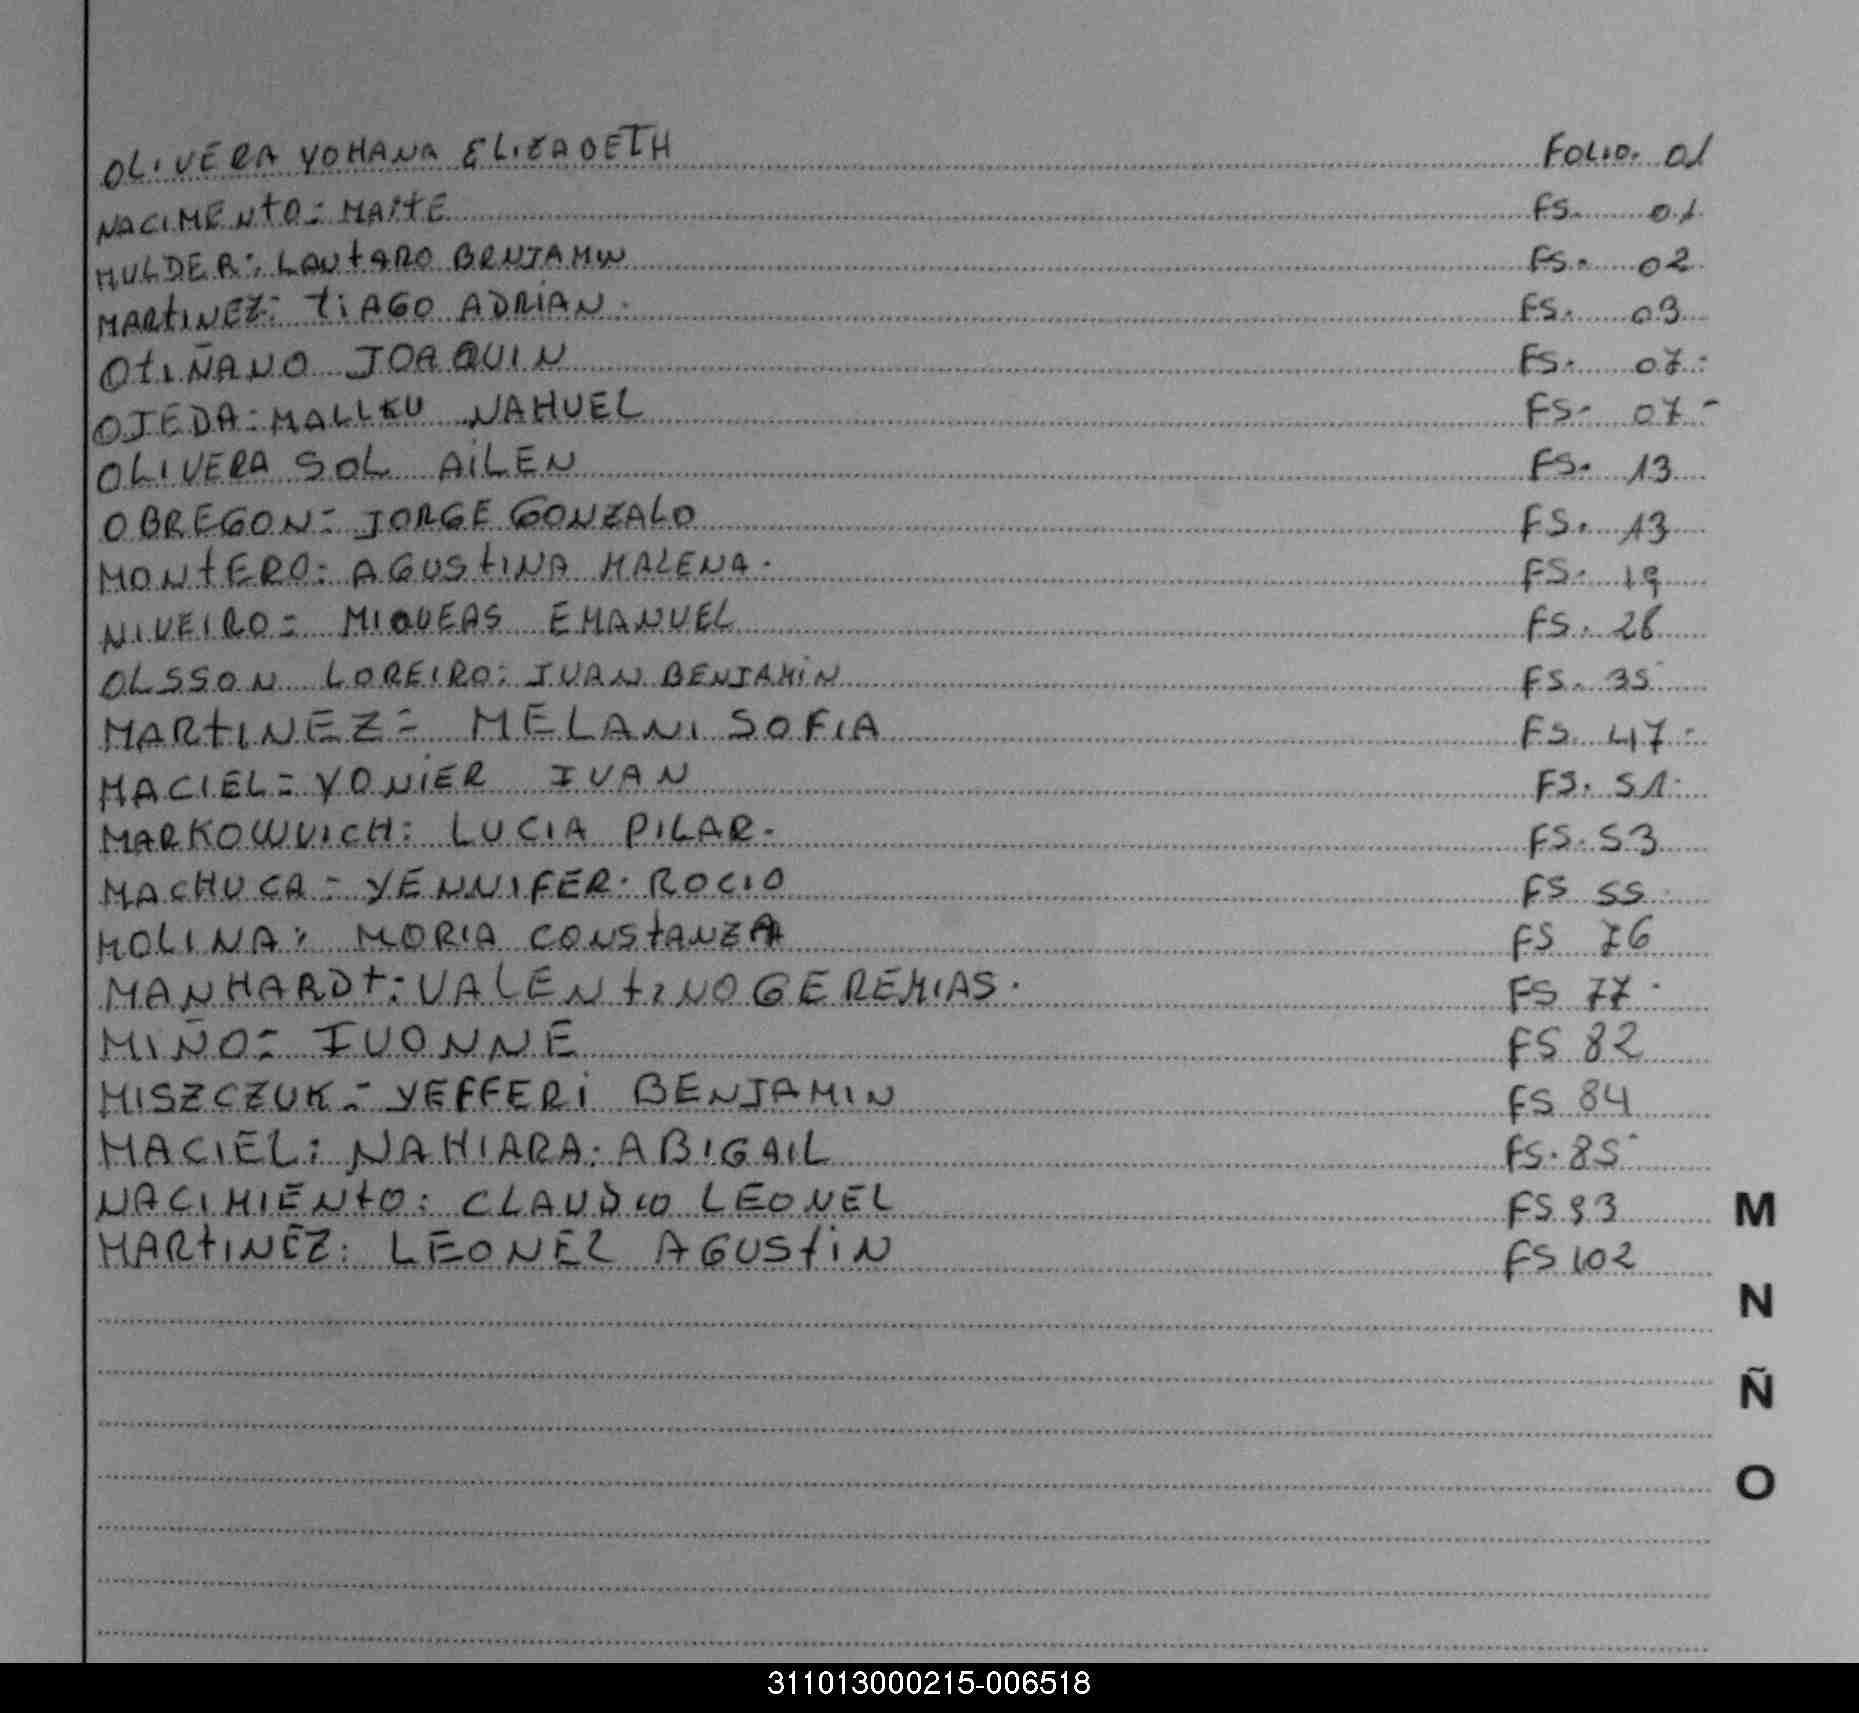 OLIVERA YOHANA ELIZABETH FOLIO. 01
NACIMENTO = MAITE FS. 01
MULDER: LAUTARO BENJAMIN FS. 02
MARTINEZ: TIAGO ADRIAN. FS. 03
OTIÑANO JOAQUIN FS. 07.
OJEDA: MALLKU NAHUEL FS. 07-
OLIVERA SOL AILEN FS. 13
OBREGON = JORGE GONZALO FS. 13
MONTERO: AGUSTINA MALENA. FS. 19
NIVEIRO = MIQUEAS EMANUEL FS. 26
OLSSON LOREIRO: IVAN BENJAMIN FS. 35
MARTINEZ = MELANI SOFIA FS. 47-
MACIEL = YONIER IVAN FS. 51.
MARKOWVICH: LUCIA PILAR. FS. 53
MACHUCA = YENNIFER. ROCIO FS 55
MOLINA: MORIA CONSTANZA FS 76
MANHARDT: VALENTINO GEREMIAS. FS 77.
MIÑO = IVONNE FS 82
MISZCZUK = YEFFERI BENJAMIN FS 84
MACIEL: NAHIARA. ABIGAIL FS. 85
NACIMIENTO: CLAUDIO LEONEL FS 93
MARTINEZ: LEONEL AGUSTIN FS 102
M
N
Ñ
O
311013000215-006518